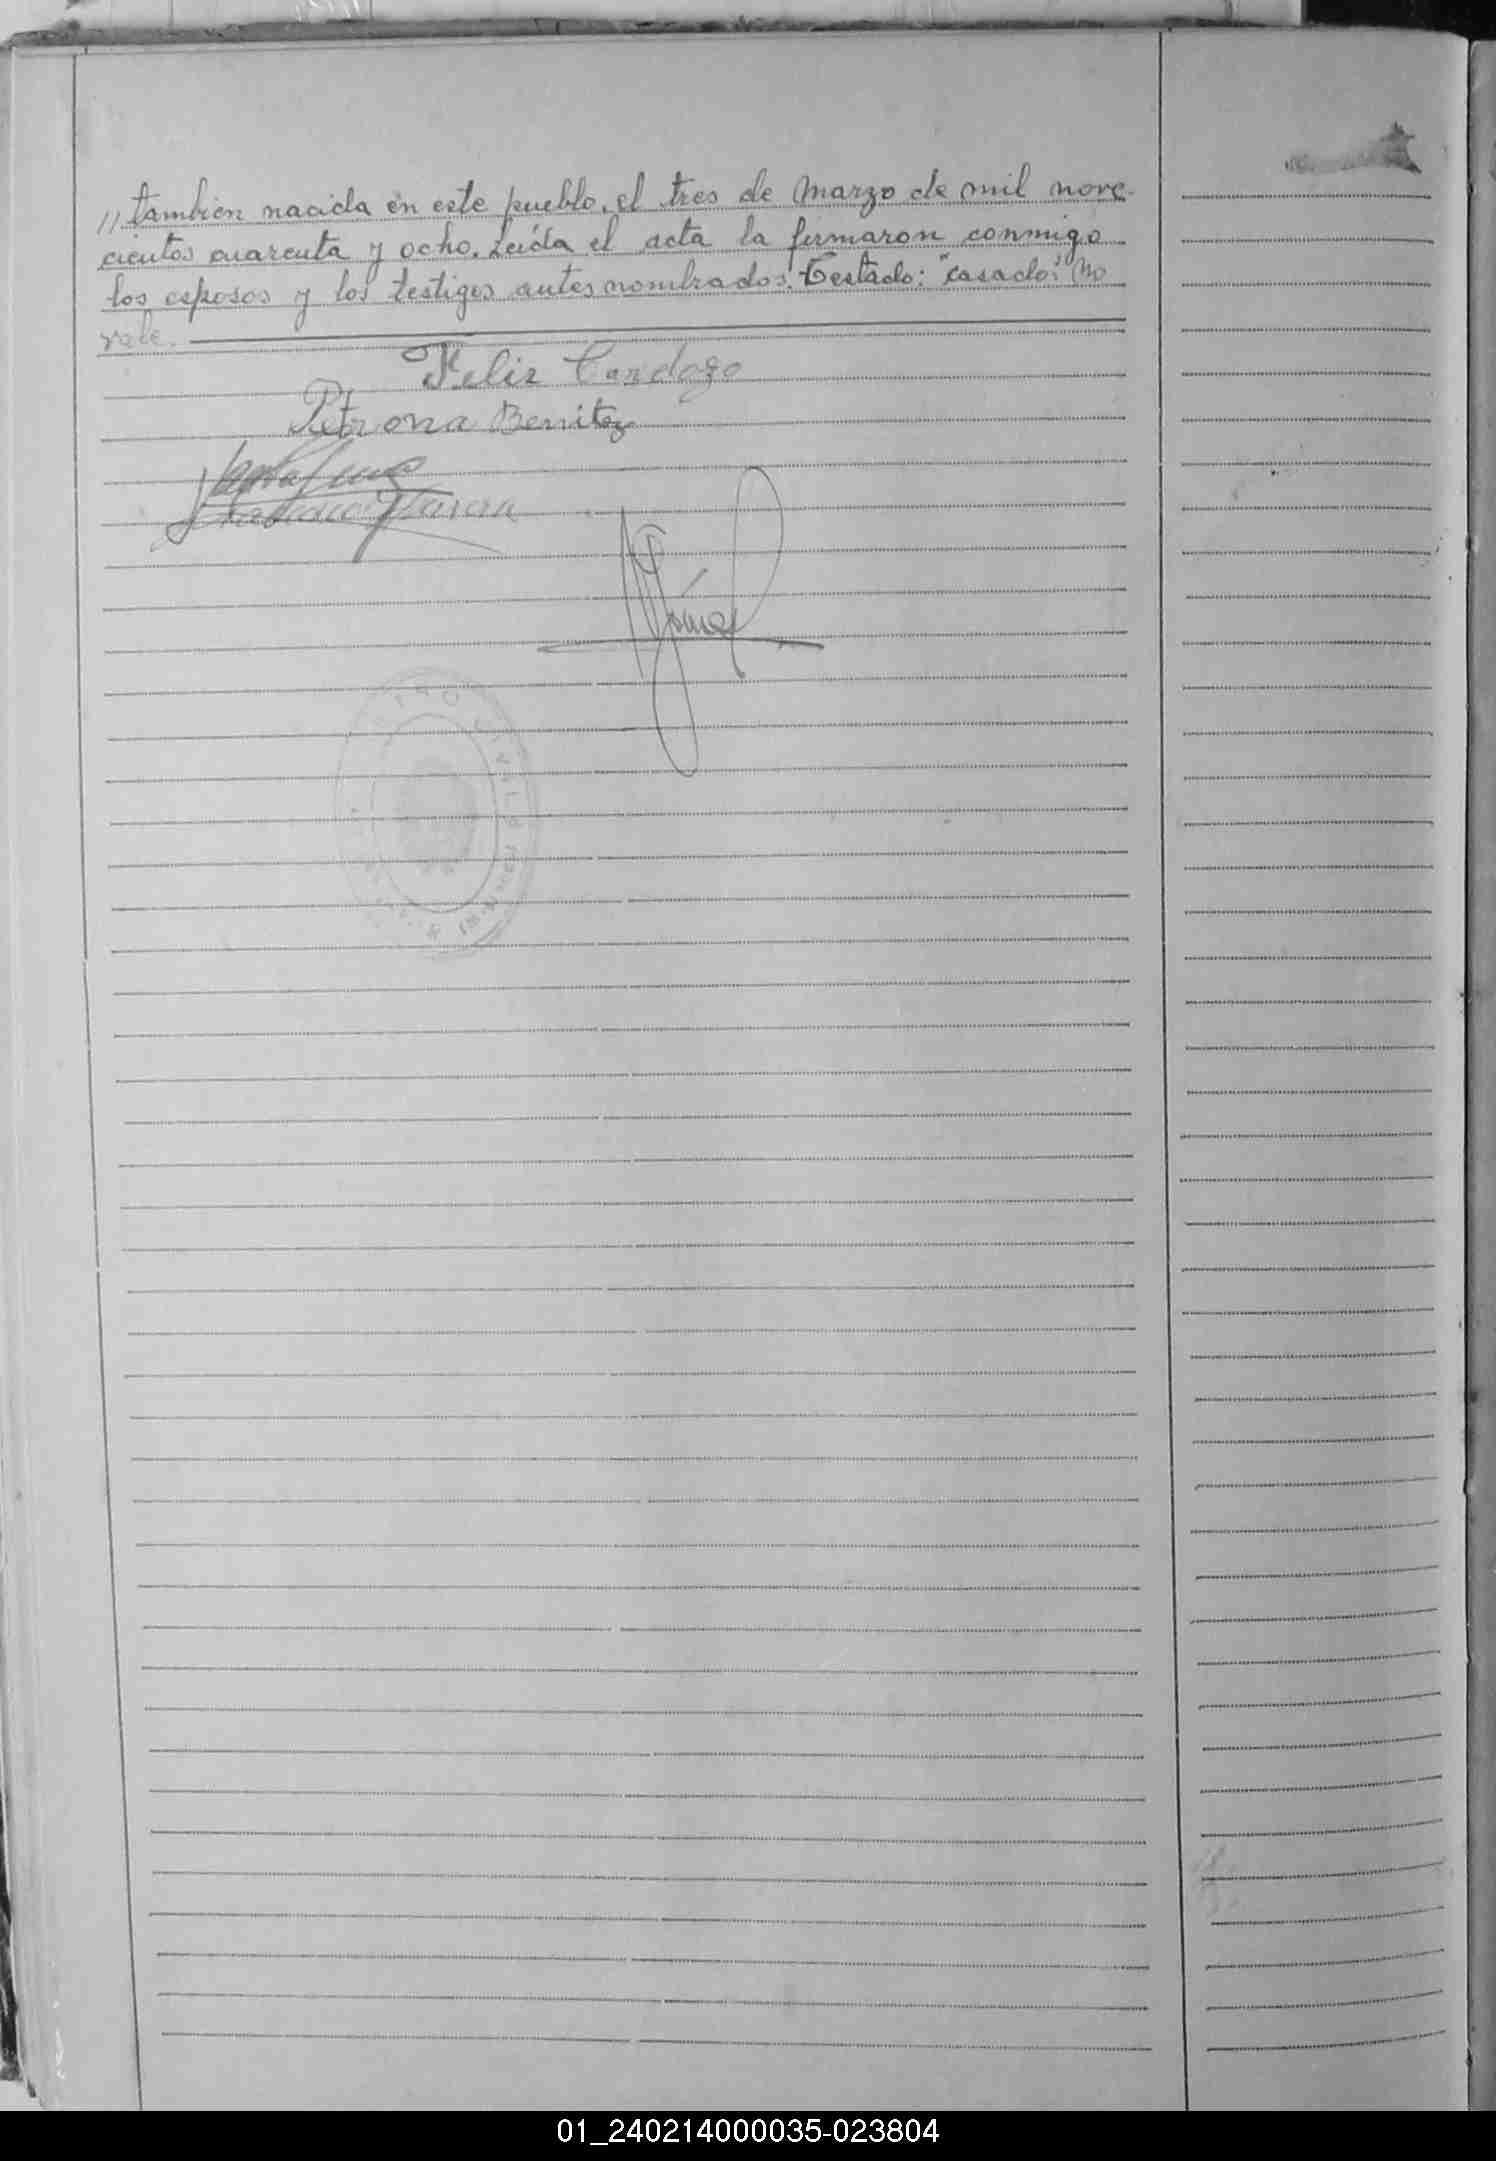 // tambien nacida en este pueblo, el tres de Marzo de mil nove-
cientos cuarenta y ocho. Leída el acta la firmaron conmigo
los esposos y los testigos antes nombrados. Testado: "casado". No
vale.
Feliz Cardozo
Petrona Benitez
01_240214000035-023804